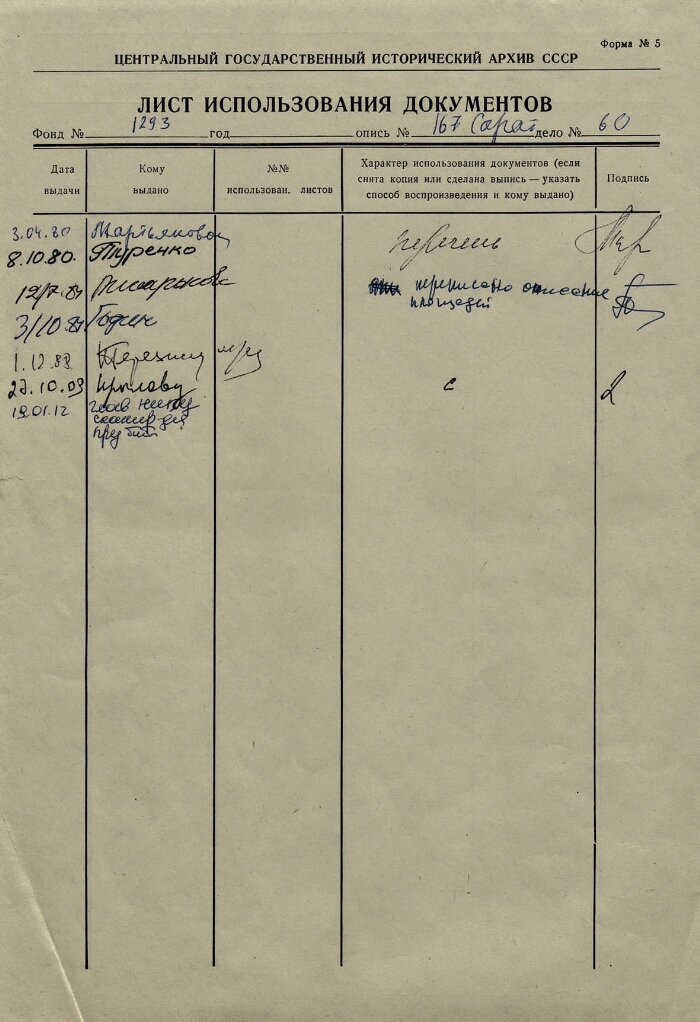 Форма № 5
ЦЕНТРАЛЬНЫЙ ГОСУДАРСТВЕННЫЙ ИСТОРИЧЕСКИЙ АРХИВ СССР
ЛИСТ ИСПОЛЬЗОВАНИЯ ДОКУМЕНТОВ
Фонд № 1293 год опись № 167 Сарат дело № 60
Дата выдачи
Кому выдано
№№ использован. листов
Характер использования документов (если снята копия или сделана выпись — указать способ воспроизведения и кому выдано)
Подпись
3.04.80 Мартьяновой
8.10.80. Туренко перечень
переписано описание
площадей
3/10 Годин
1.12.88
27.10.09 Крылову с
19.01.12